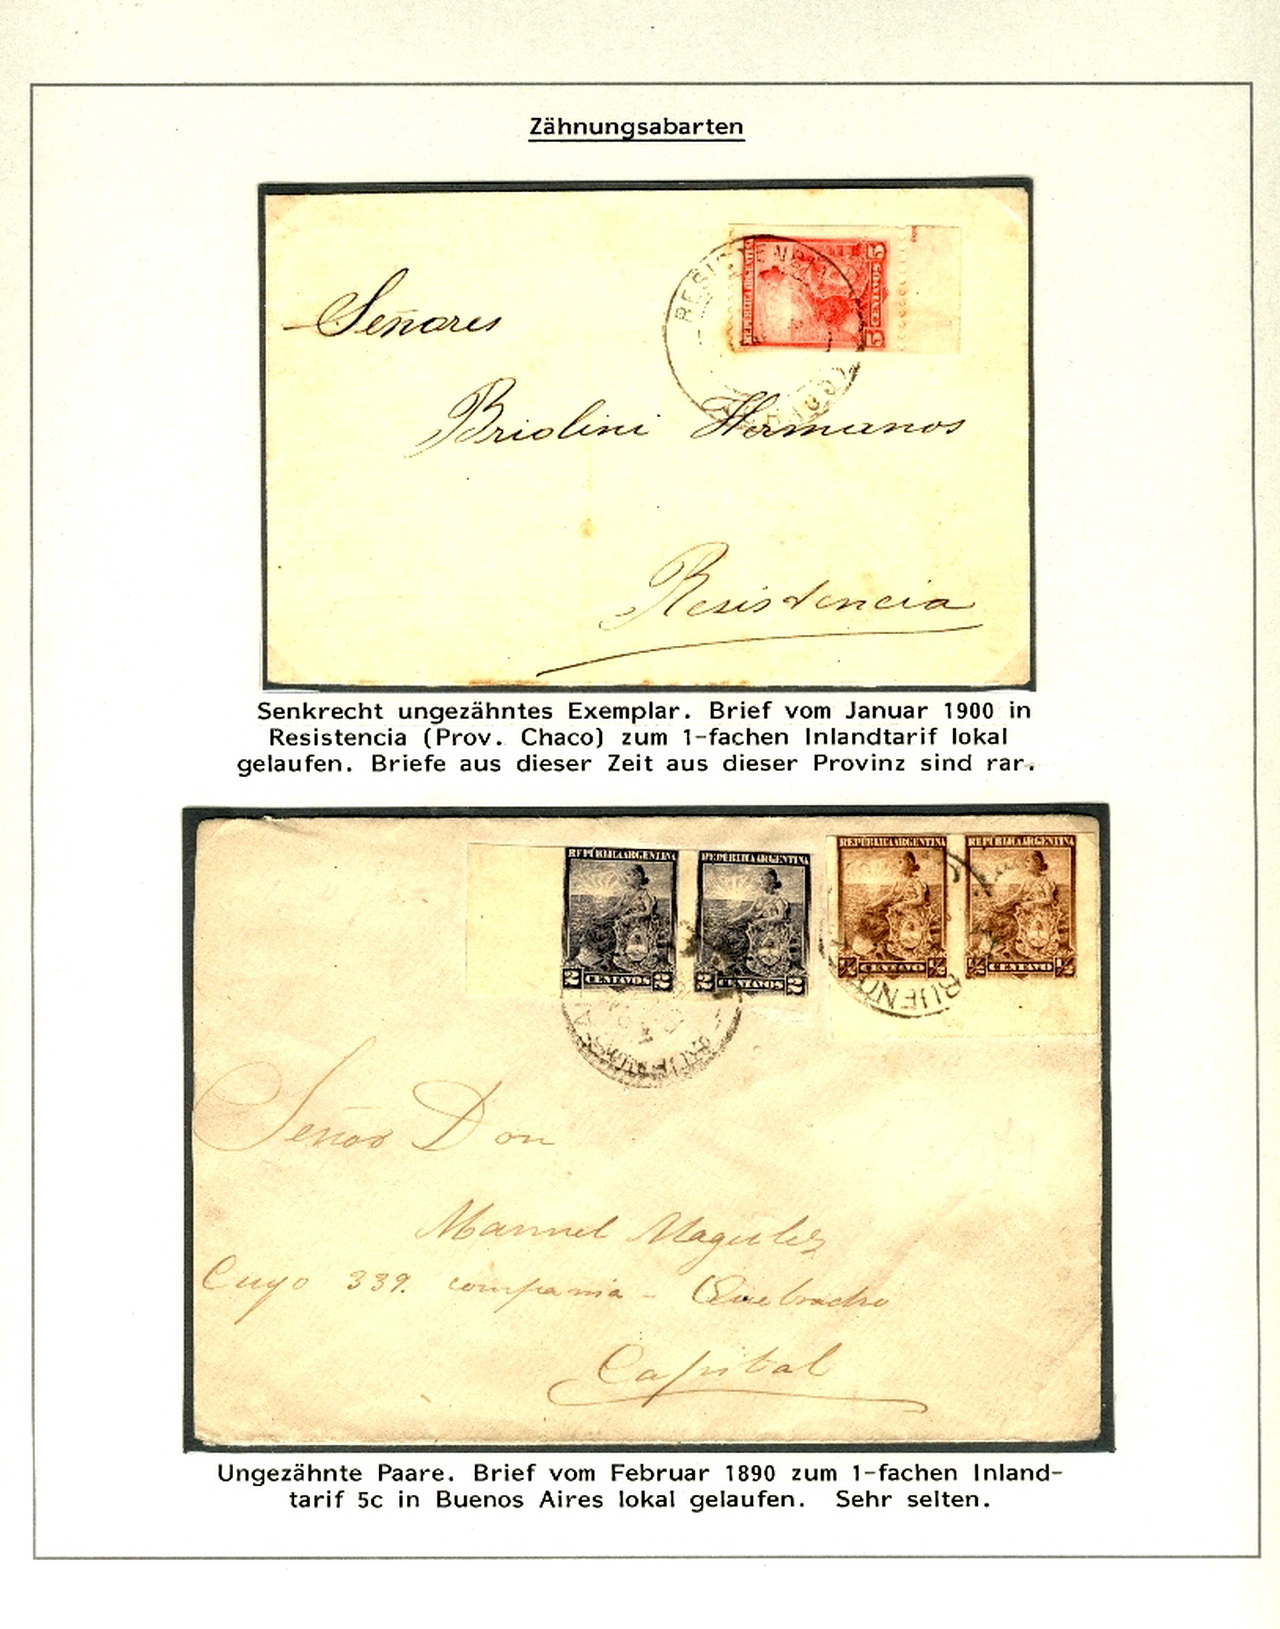 Zähnungsabarten
REPUBLICA ARGENTINA
5 CENTAVOS 5
RESISTENCIA
Señores
Briolini Hermanos
Resistencia
Senkrecht ungezähntes Exemplar. Brief vom Januar 1900 in
Resistencia (Prov. Chaco) zum 1-fachen Inlandtarif lokal
gelaufen. Briefe aus dieser Zeit aus dieser Provinz sind rar.
REPUBLICA ARGENTINA REPUBLICA ARGENTINA REPUBLICA ARGENTINA REPUBLICA ARGENTINA
2 CENTAVOS 2 2 CENTAVOS 2 ½ CENTAVO ½ ½ CENTAVO ½
BUENO
Señor Don
Manuel
Cuyo 339. compania - Quebracho
Capital
Ungezähnte Paare. Brief vom Februar 1890 zum 1-fachen Inland-
tarif 5c in Buenos Aires lokal gelaufen. Sehr selten.